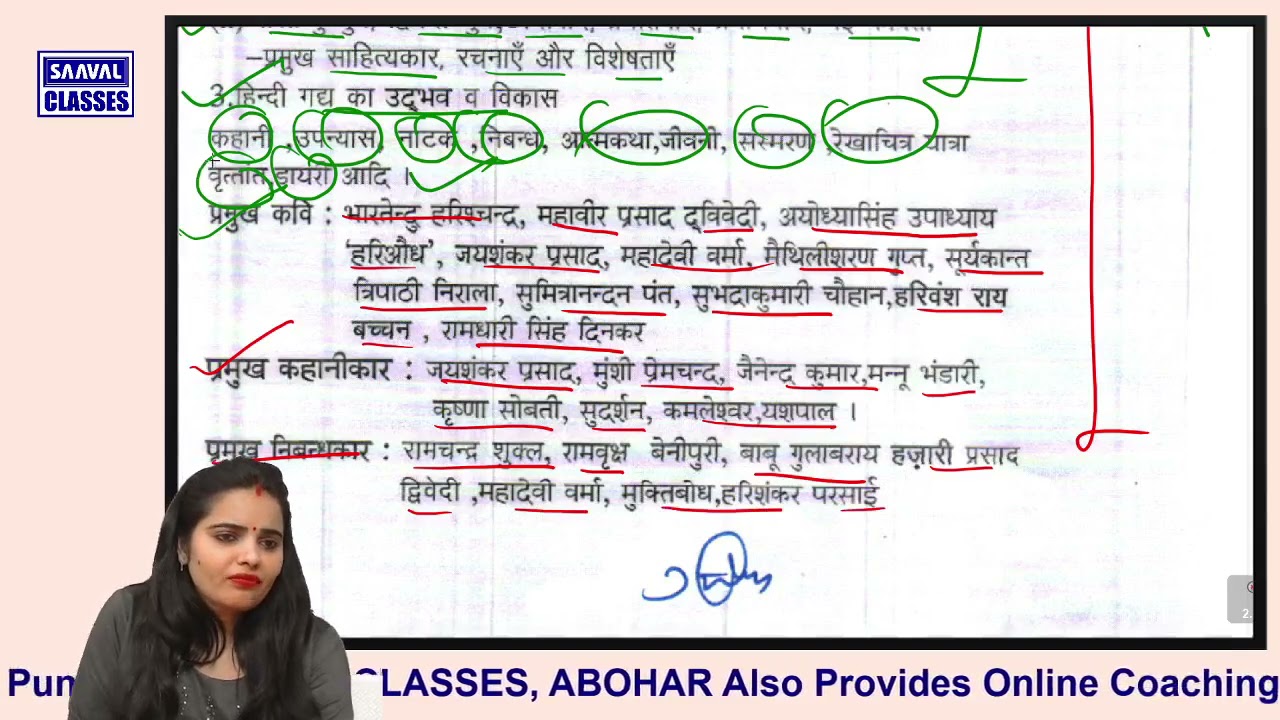 SAAVAL
CLASSES
–प्रमुख साहित्यकार, रचनाएँ और विशेषताएँ
3.हिन्दी गद्य का उद्भव व विकास
कहानी ,उपन्यास, नाटक ,निबन्ध, आत्मकथा,जीवनी, सस्मरण ,रेखाचित्र यात्रा
वृत्तांत,डायरी आदि ।
प्रमुख कवि : भारतेन्दु हरिश्चन्द्र, महावीर प्रसाद द्विवेदी, अयोध्यासिंह उपाध्याय
'हरिऔध', जयशंकर प्रसाद, महादेवी वर्मा, मैथिलीशरण गुप्त, सूर्यकान्त
त्रिपाठी निराला, सुमित्रानन्दन पंत, सुभद्राकुमारी चौहान,हरिवंश राय
बच्चन , रामधारी सिंह दिनकर
प्रमुख कहानीकार : जयशंकर प्रसाद, मुंशी प्रेमचन्द, जैनेन्द्र कुमार,मन्नू भंडारी,
कृष्णा सोबती, सुदर्शन, कमलेश्वर,यशपाल ।
प्रमुख निबन्धकार : रामचन्द्र शुक्ल, रामवृक्ष बेनीपुरी, बाबू गुलाबराय हज़ारी प्रसाद
द्विवेदी ,महादेवी वर्मा, मुक्तिबोध,हरिशंकर परसाई
2.
CLASSES, ABOHAR Also Provides Online Coaching